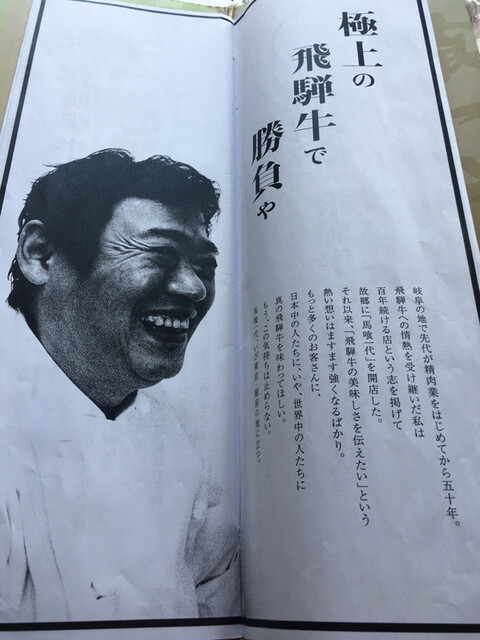 極上の
飛騨牛で
勝負や
岐阜の地で先代が精肉業をはじめてから五十年。
飛騨牛への情熱を受け継いだ私は
百年続ける店という志を掲げて
故郷に「馬喰一代」を開店した。
それ以来、「飛騨牛の美味しさを伝えたい」という
熱い想いはますます強くなるばかり。
もっと多くのお客さんに、
日本中の人たちに、いや、世界中の人たちに
真の飛騨牛を味わってほしい。
もう、この気持ちは止められない。
馬喰一代、いざ東京・銀座の地に立つ。